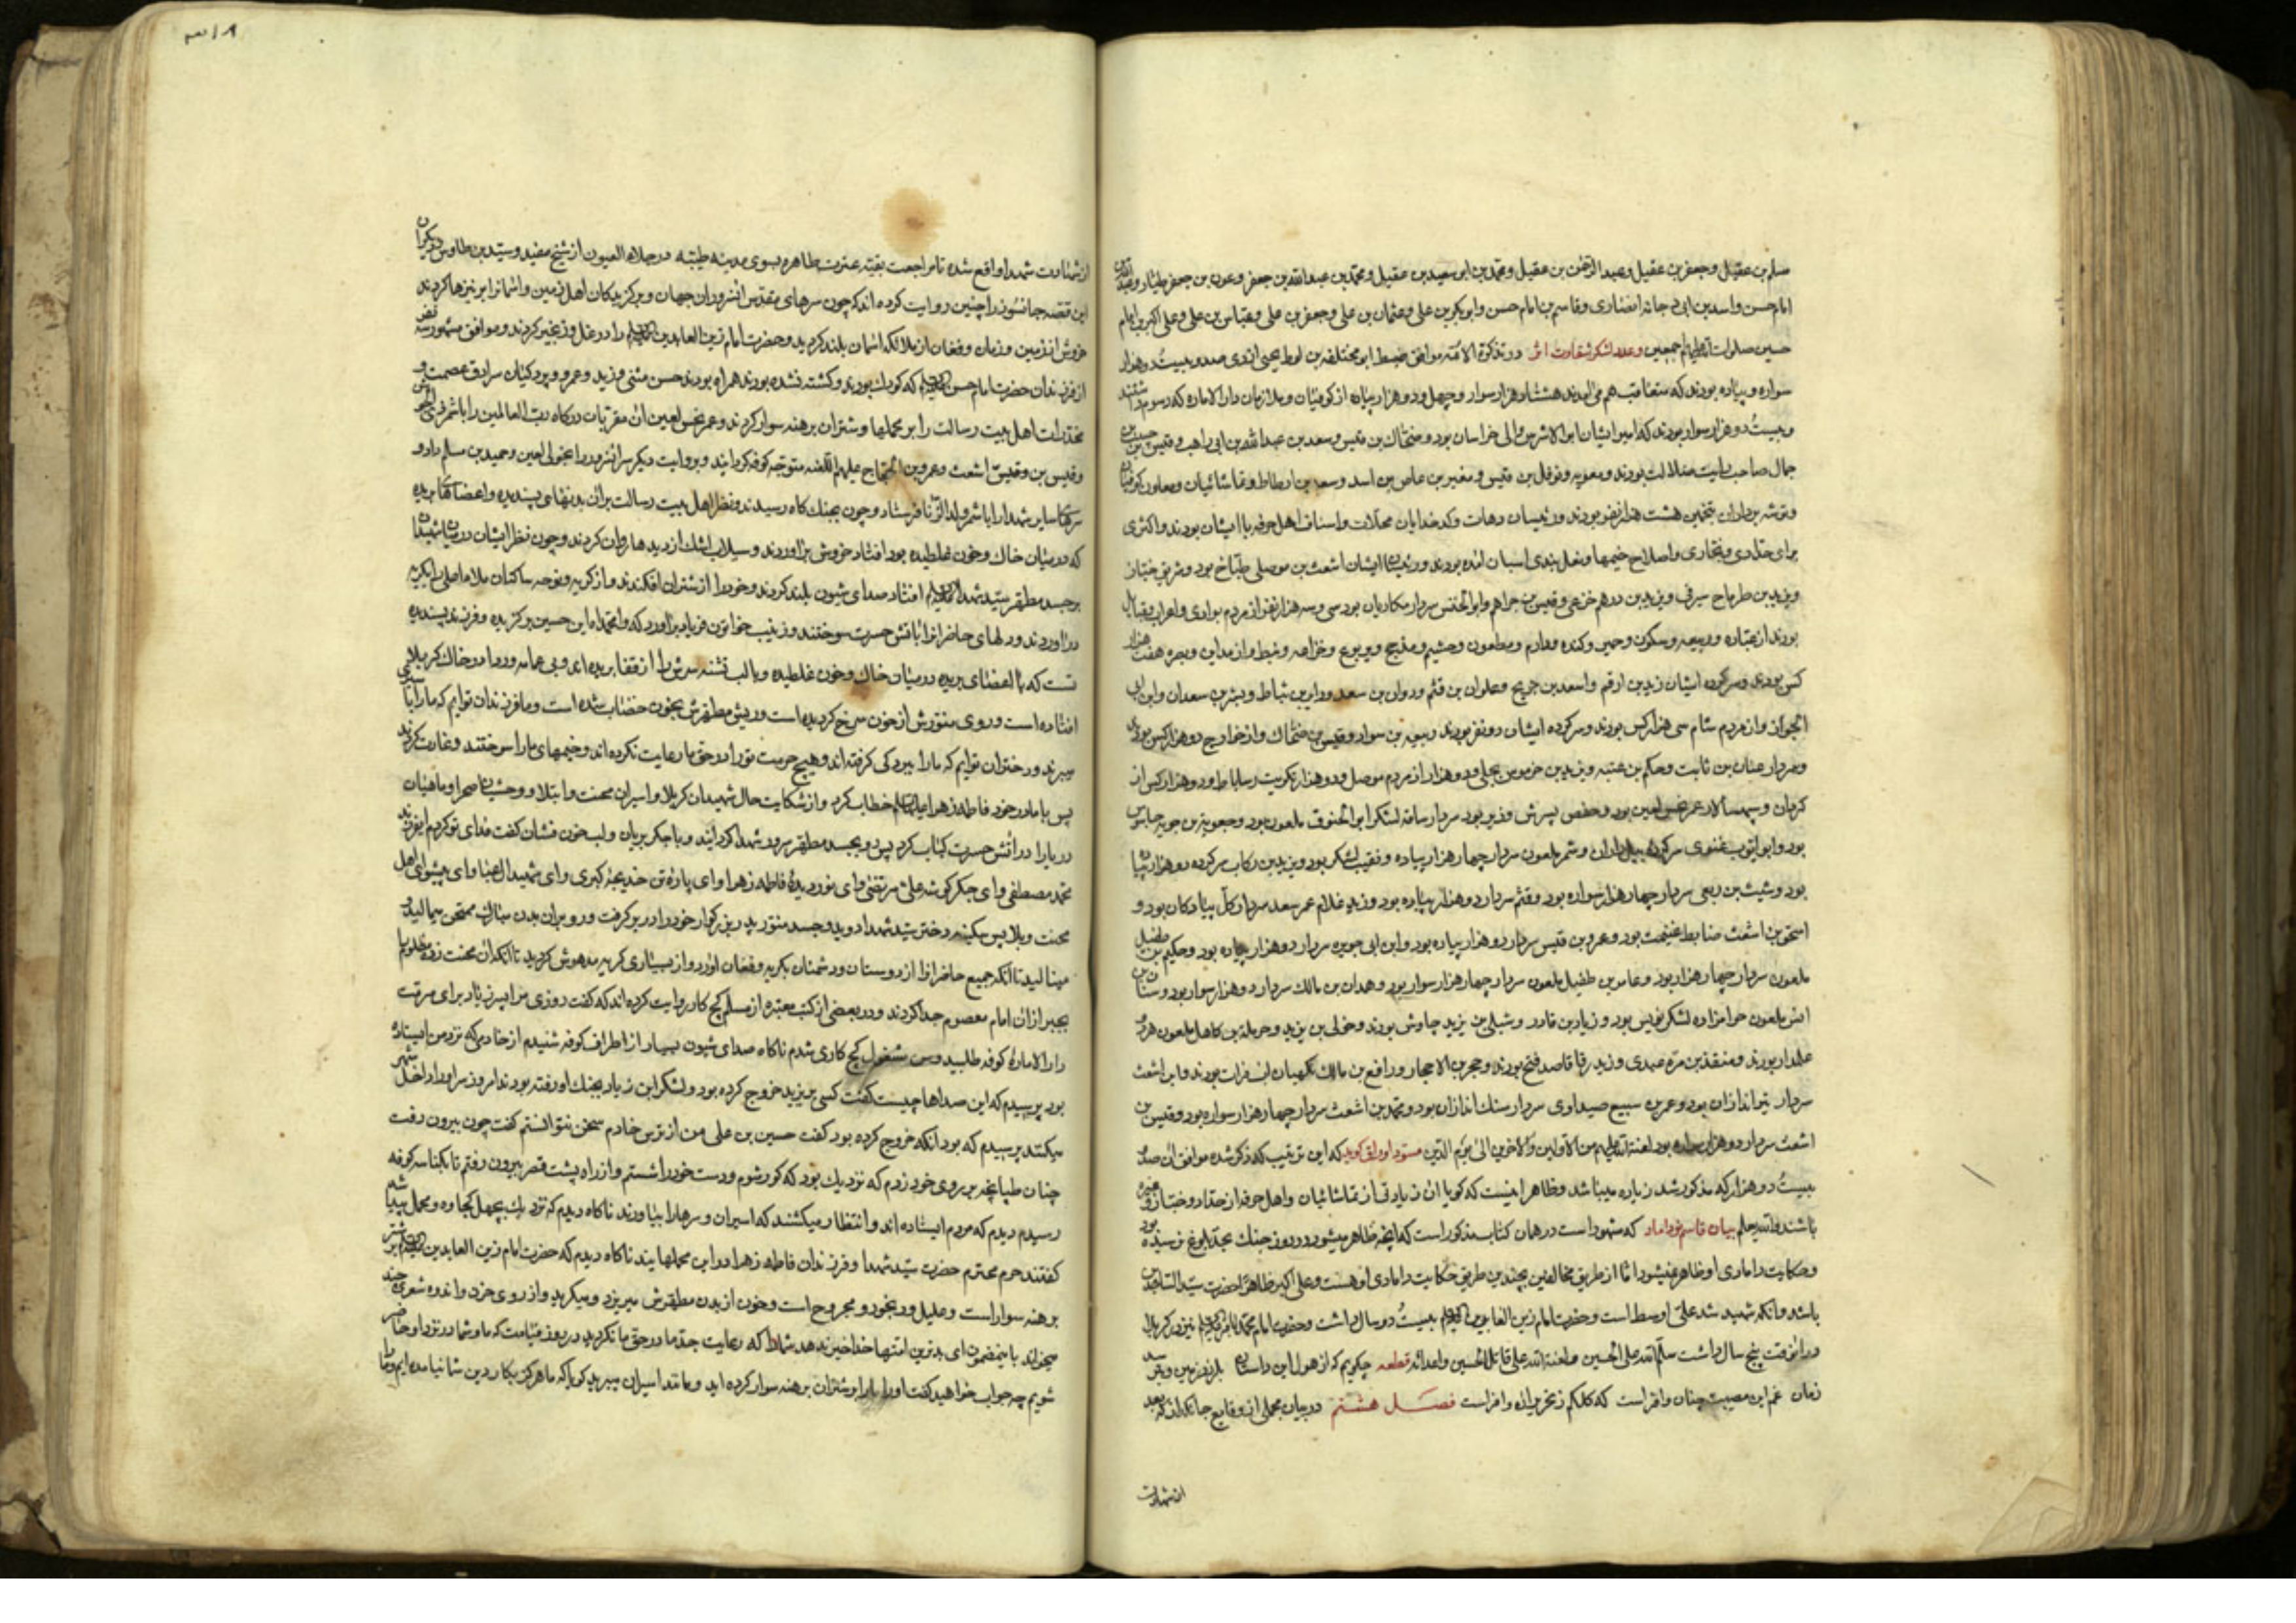 مسلم بن عقیل و جعفر بن عقیل و عبد الرحمن بن عقیل و محمد بن ابی سعید بن عقیل و محمد بن عبد الله بن جعفر و عون بن جعفر طیار و عبد الله بن
امام حسن و اسد بن ابی دجانه انصاری و قاسم بن امام حسن و ابو بکر بن علی و عثمان بن علی و جعفر بن علی و عباس بن علی و علی اکبر بن امام
حسین صلوات الله علیهم اجمعین و عدد لشکر شقاوت اثر در تذکرة الائمه موافق ضبط ابو مخنف بن لوط یحیی ازدی صد و بیست و دو هزار
سواره و پیاده بودند که متعاقب هم می‌آمدند هشتاد هزار سوار و چهل و دو هزار پیاده از کوفیان و ملازمان دار الاماره که رسوم داشتند
و بیست و دو هزار سوار بودند که امیر ایشان ابو الاشرس والی خراسان بود و ضحاک بن قیس و سعد بن عبد الله بن ابی راهب و قیس بن
جمال صاحب رایت ضلالت بودند و معویه و نوفل بن قیس و مغیر بن عاص بن اسد و سعد بن ارطاط و تماشائیان و معاون کوفیان
و توشه برداران بتخمین هشت هزار نفر بودند و رئیسان دهات و کدخدایان محلات و اصناف اهل حرفه با ایشان بودند و اکثری
برای حدادی و نجاری و اصلاح خیمها و نعل بندی اسبان آمده بودند و رئیس ایشان اشعث بن موصلی طباخ بود و شریفی خباز
و یزید بن طرماح سیرفی و یزید بن درهم خزعی و قیس بن جراهم و ابو الخنس سردار مکاریان بود سی و سه هزار نفر از مردم بوادی و اعراب و قبایل
بودند از عباده و ربیعه و سکون و حمیر و کنده و دارم و مطعون و جشیم و مذحج و یربوع و خزاعه و نبط و از مداین و بصره هفت هزار
کس بودند و سرکرده ایشان زید بن ارقم و اسعد بن جریح و علوان بن قثم و روان بن سعد و راین بن تباط و بشر بن سعدان و ابن ابی
الجواز و از مردم شام سی هزار کس بودند و سرکرده ایشان دو نفر بودند ربیعه بن سوار و قیس بن ضحاک و از خوارج دو هزار کس بودند
و سردار عنان بن ثابت و حکم بن عتبه و یزید بن خرموس بجلی و دو هزار از مردم موصل و دو هزار تکریت و ساباط و دو هزار کس از
کرمان و سپهسالار عمر نحس لعین بود و حفص پسرش وزیر بود سردار ساقه لشکر ابو الخنوق ملعون بود و جعوینه بن جویه جاسوس
بود و ابو ایوب غنوی سرکرده بیل داران و شمر ملعون سردار چهار هزار پیاده و نقیب لشکر بود و یزید بن رکاب سرکرده دو هزار پیاده
بود و شبث بن ربعی سردار چهار هزار سواره بود و قثم سردار دو هزار پیاده بود و زید غلام عمر سعد سردار کل پیادگان بود و
اسحق بن اشعث ضابط غنیمت بود و عمرو بن قیس سردار دو هزار پیاده بود و ابن ابی جویره سردار دو هزار پیاده بود و حکیم بن طفیل
ملعون سردار چهار هزار بود و عامر بن طفیل ملعون سردار چهار هزار سوار بود و هدان بن مالک سردار دو هزار سوار بود و سنان بن
انس ملعون حرامزاده لشکر نویس بود و زیاد بن قادر و شبلی بن یزید چاوش بودند و خولی بن یزید و حرمله بن کاهل ملعون هر دو
علمدار بودند و منقذ بن مره عبدی و زید رقا قاصد فتح بودند و حجر بن الاحجار و رافع بن مالک نگهبان آب فرات بودند و ابن اشعث
سردار تیراندازان بود و عمر بن سبیع صیداوی سردار سنک اندازان بود و محمد بن اشعث سردار چهار هزار سواره بود و قیس بن
اشعث سردار دو هزار سواره بود لعنة الله علیهم من الاولین والاخرین الی یوم الدین مسود اوراق گوید که این ترتیب که ذکر شده موافق آن صد و
بیست و دو هزار که مذکور شد زیاده میباشد و ظاهر اینست که گویا آن زیادتی از تماشائیان و اهل حرفه از حداد و خباز و غیره
باشند والله یعلم بیان قاسم نو داماد که مشهور است در همان کتاب مذکور است که آنچه ظاهر میشود در روز جنک بحد بلوغ نرسیده بود
و حکایت دامادی او ظاهر نمیشود اما از طریق مخالفین بچندین طریق حکایت دامادی او هست و علی اکبر ظاهرا حضرت سید الساجدین
باشد و آنکه شهید شد علی اوسط است و حضرت امام زین العابدین علیه السلام بیست و دو سال داشت و حضرت امام محمد باقر علیه السلام نیز در کربلا
در آنوقت پنج سال داشت سلم الله علی الحسین و لعنة الله علی قاتل الحسین و اعدائه قطعه چگویم که از هول این داستان بلرزد زمین و
زمان غم این مصیبت چنان وافر است که کلکم ز تحریر آن وافر است فصل هشتم در بیان مجملی از وقایع جانگداز که بعد
از شهادت
از شهادت شهدا واقع شده تا مراجعت بقیه عترت طاهره بسوی مدینه طیبه در جلاء العیون از شیخ مفید و سید بن طاوس و دیگران
این قصه جانسوز را چنین روایت کرده اند که چون سرهای مقدس آن سروران جهان و برگزیدگان اهل زمین و آسمانرا بر نیزها کردند
خروش از زمین و زمان و فغان از ملائکه آسمان بلند گردید و حضرت امام زین العابدین علیه السلام را در غل و زنجیر کردند و موافق مشهور سه نفر
از فرزندان حضرت امام حسن علیه السلام که کودک بودند و کشته نشده بودند همراه بودند حسن مثنی و زید و عمرو و پردکیان سرادق عصمت و
مخدرات اهل بیت رسالت را بر محملها و شتران برهنه سوار کردند و عمر نحس لعین آن مقربان درگاه رب العالمین را با شمر ذی الجوشن
و قیس بن اشعث و عمرو بن الحجاج علیهم اللعنه متوجه کوفه گردانید و بروایت دیگر سر آنسرور را بخولی لعین و حمید بن مسلم داد و
سرهای سایر شهدا را با شمر ولد الزنا فرستاد و چون بجنک گاه رسیدند و نظر اهل بیت رسالت بر آن بدنهای پسندیده و اعضاهای بریده
که در میان خاک و خون غلطیده بود افتاد خروش برآوردند و سیلاب اشک از دیدها روان کردند و چون نظر ایشان در میان شهیدان
بر جسد مطهر سید شهدا علیه السلام افتاد صدای شیون بلند کردند و خود را از شتران افکندند و از گریه و نوحه ساکنان ملاء اعلی را بگریه
درآوردند و دلهای حاضرانرا بآتش حسرت سوختند و زینب خواتون فریاد برآورد که وا محمداه این حسین برگزیده و فرزند پسندیده
تست که با اعضای بریده در میان خاک و خون غلطیده و با لب تشنه سرش را از قفا بریده اند و بی عمامه و ردا در خاک کربلا
افتاده است و روی منورش از خون سرخ گردیده است و ریش مطهرش بخون خضاب شده است و ما فرزندان توایم که ما را باسیری
میبرند و دختران توایم که ما را ببردگی گرفته اند و هیچ حرمت تو را در حق ما رعایت نکرده اند و خیمهای ما را سوختند و غارت کردند
پس با مادر خود فاطمه زهرا علیها السلام خطاب کرد و از شکایت حال شهیدان کربلا و اسیران محنت و ابتلا و وحشیان صحرا و ماهیان
دریا را در آتش حسرت کباب کرد پس رو بجسد مطهر سرور شهدا گردانید و با جگر بریان و لب خون فشان گفت فدای تو گردم ای فرزند
محمد مصطفی و ای جگر گوشه علی مرتضی و ای نور دیده فاطمه زهرا و ای پاره تن خدیجه کبری و ای شهید آل عبا و ای پیشوای اهل
محنت و بلا پس سکینه دختر سید شهدا دوید و جسد منور پدر بزرگوار خود را در بر گرفت و رو بر آن بدن مبارک ممتحن میمالید و
مینالید تا آنکه جمیع حاضرانرا از دوستان و دشمنان بگریه و فغان آورد و از بسیاری گریه مدهوش گردید تا آنکه آن محنت زده مظلوم را
بجبر از آن امام معصوم جدا کردند و در بعضی از کتب معتبره از مسلم گچ کار روایت کرده اند که گفت روزی مرا پسر زیاد برای مرمت
دار الاماره کوفه طلبید و من مشغول گچ کاری شدم ناگاه صدای شیون بسیار از اطراف کوفه شنیدم از خادمی که نزد من ایستاده
بود پرسیدم که این صداها چیست گفت کسی بر یزید خروج کرده بود و لشکر ابن زیاد بجنک او رفته بودند امروز سر او را داخل شهر
میکنند پرسیدم که بود آنکه خروج کرده بود گفت حسین بن علی من از ترس خادم سخن نتوانستم گفت چون بیرون رفت
چنان طپانچه بر روی خود زدم که نزدیک بود که کور شوم و دست خود را شستم و از راه پشت قصر بیرون رفتم تا بکناسه کوفه
رسیدم دیدم که مردم ایستاده اند و انتظار میکشند که اسیران و سرها را بیاورند ناگاه دیدم که نزدیک بچهل کجاوه و محمل پیدا شد
گفتند حرم محترم حضرت سید شهدا و فرزندان فاطمه زهرا در این محملهایند ناگاه دیدم که حضرت امام زین العابدین علیه السلام بر شتر
برهنه سوار است و علیل و رنجور و مجروح است و خون از بدن مطهرش میریزد و میگرید و از روی حزن و اندوه شعری چند
میخواند باین مضمون ای بدترین امتها خدا خیر ندهد شما را که رعایت جد ما در حق ما نکردید در روز قیامت که ما و شما در نزد او حاضر
شویم چه جواب خواهید گفت او را ما را بر شتران برهنه سوار کرده اید و مانند اسیران میبرید گویا که ما هرگز بکار دین شما نیامده ایم و ما را